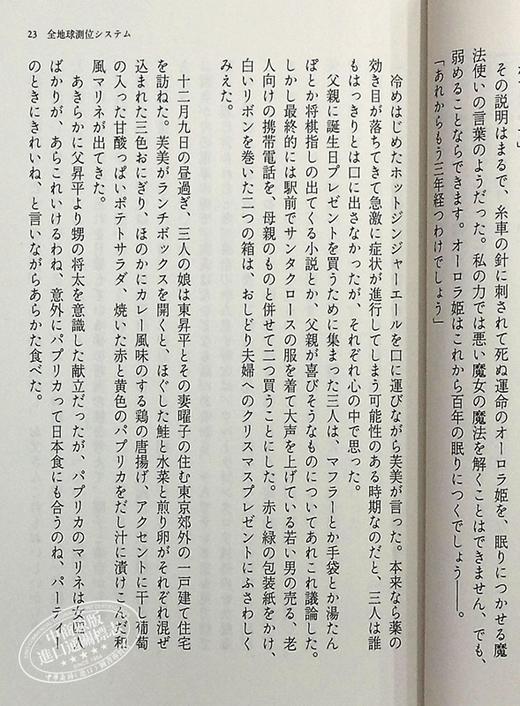 23 全地球測位システム
その説明はまるで、糸車の針に刺されて死ぬ運命のオーロラ姫を、眠りにつかせる魔
法使いの言葉のようだった。私の力では悪い魔女の魔法を解くことはできません、でも、
弱めることならできます。オーロラ姫はこれから百年の眠りにつくでしょう――。
「あれからもう三年経つわけでしょう」
冷めはじめたホットジンジャーエールを口に運びながら芙美が言った。本来なら薬の
効き目が落ちてきて急激に症状が進行してしまう可能性のある時期なのだと、三人は誰
もはっきりとは口に出さなかったが、それぞれ心の中で思った。
父親に誕生日プレゼントを買うために集まった三人は、マフラーとか手袋とか湯たん
ぽとか将棋指しの出てくる小説とか、父親が喜びそうなものについてあれこれ議論した。
しかし最終的には駅前でサンタクロースの服を着て大声を上げている若い男の売る、老
人向けの携帯電話を、母親のものと併せて二つ買うことにした。赤と緑の包装紙をかけ、
白いリボンを巻いた二つの箱は、おしどり夫婦へのクリスマスプレゼントにふさわしく
みえた。
十二月九日の昼過ぎ、三人の娘は東昇平とその妻曜子の住む東京郊外の一戸建て住宅
を訪ねた。芙美がランチボックスを開くと、ほぐした鮭と水菜と煎り卵がそれぞれ混ぜ
込まれた三色おにぎり、ほのかにカレー風味のする鶏の唐揚げ、アクセントに干し葡萄
の入った甘酸っぱいポテトサラダ、焼いた赤と黄色のパプリカをだし汁に漬けこんだ和
風マリネが出てきた。
あきらかに父昇平より甥の将太を意識した献立だったが、パプリカのマリネは女四人
ばかりが、あらこれいけるわね、意外にパプリカって日本食にも合うのね、パーティー
のときにきれいね、と言いながらあらかた食べた。